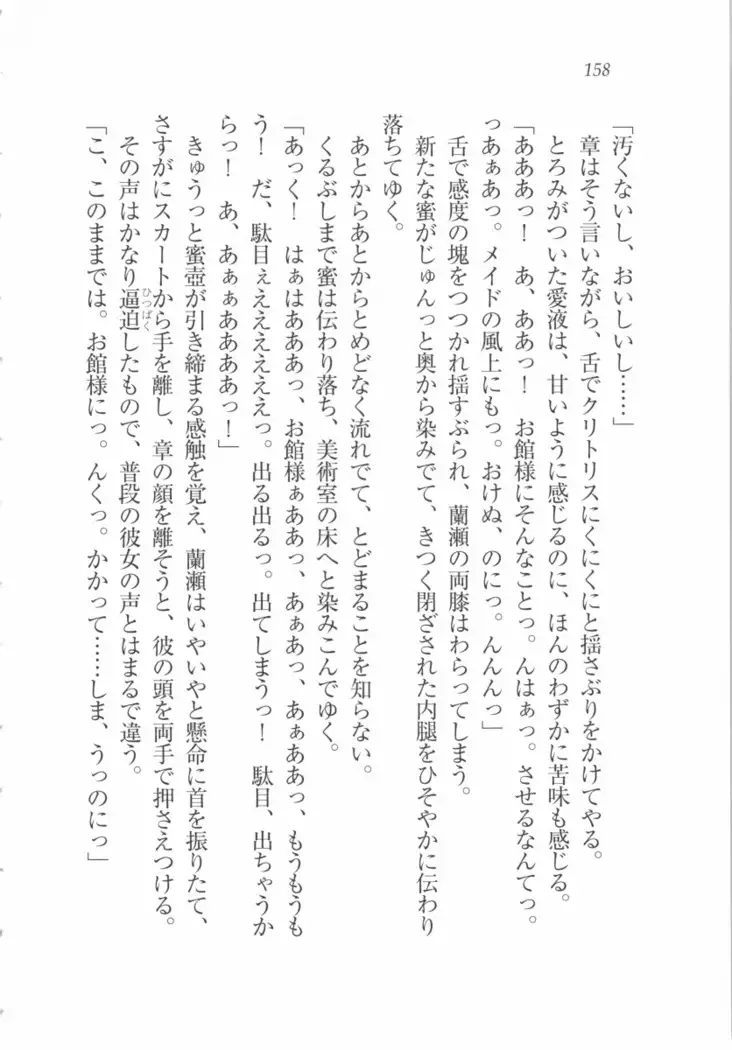 158
「汚くないし、おいしいし……」
章はそう言いながら、舌でクリトリスにくにくにと揺さぶりをかけてやる。
とろみがついた愛液は、甘いように感じるのに、ほんのわずかに苦味も感じる。
「あああっ！　あ、ああっ！　お館様にそんなことっ。んはぁっ。させるなんてっ。
っあぁあっ。メイドの風上にもっ。おけぬ、のにっ。んんんっ」
舌で感度の塊をつつかれ揺すぶられ、蘭瀬の両膝はわらってしまう。
新たな蜜がじゅんっと奥から染みでて、きつく閉ざされた内腿をひそやかに伝わり
落ちてゆく。
あとからあとからとめどなく流れでて、とどまることを知らない。
くるぶしまで蜜は伝わり落ち、美術室の床へと染みこんでゆく。
「あっく！　はぁはあああっ、お館様ぁああっ、あぁあっ、あぁああっ、もうもうも
う！　だ、駄目ぇえええええぇっ。出る出るっ。出てしまうっ！　駄目、出ちゃうか
らっ！　あ、あぁぁああああっ！」
きゅうっと蜜壺が引き締まる感触を覚え、蘭瀬はいやいやと懸命に首を振りたて、
さすがにスカートから手を離し、章の顔を離そうと、彼の頭を両手で押さえつける。
その声はかなり逼迫（ひっぱく）したもので、普段の彼女の声とはまるで違う。
「こ、このままでは。お館様にっ。んくっ。かかって……しま、うっのにっ」